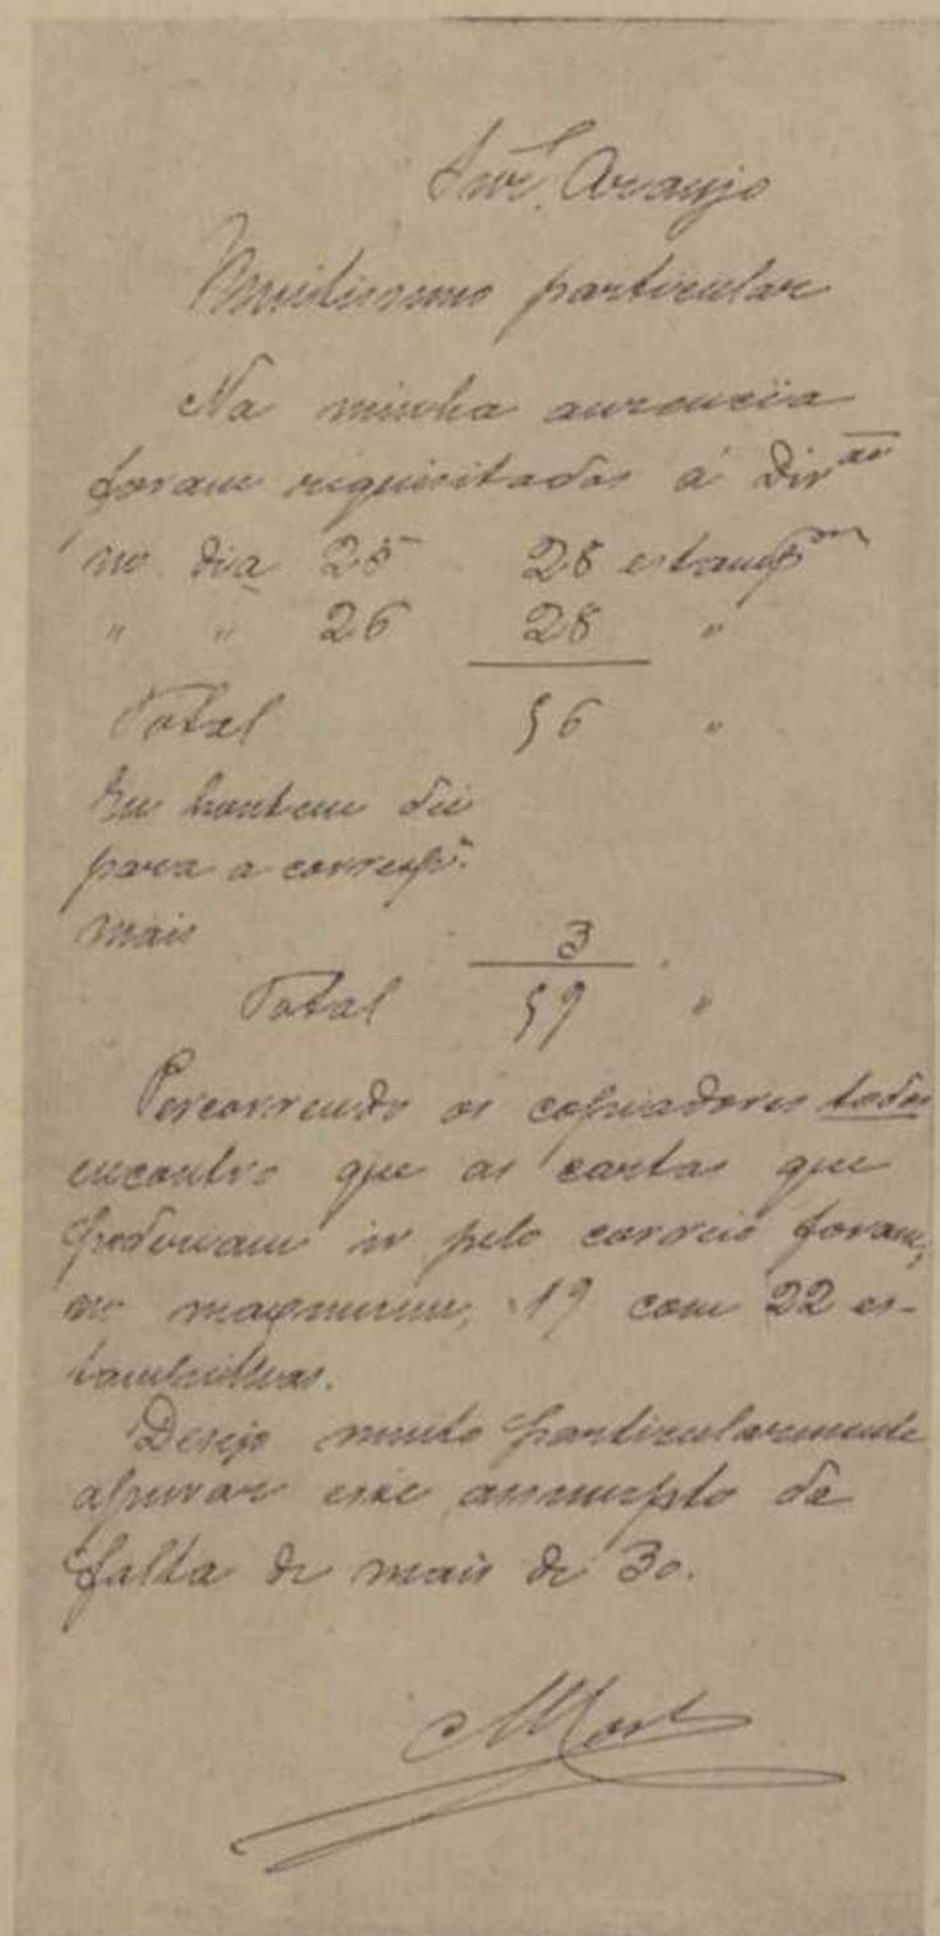 Snr. Araujo
Muitissimo particular
Na minha ausencia
foram requisitados á Dirão
no dia 25 28 estampas
" " 26 28 "
Total 56 "
Eu hontem dei
para a correspa.
mais 3
Total 59 "
Percorrendo os copiadores todos
encontro que as cartas que
poderiam ir pelo correio foram,
no maximum, 19 com 22 es-
tampilhas.
Desejo muito particularmente
apurar esse assumpto da
falta de mais de 30.